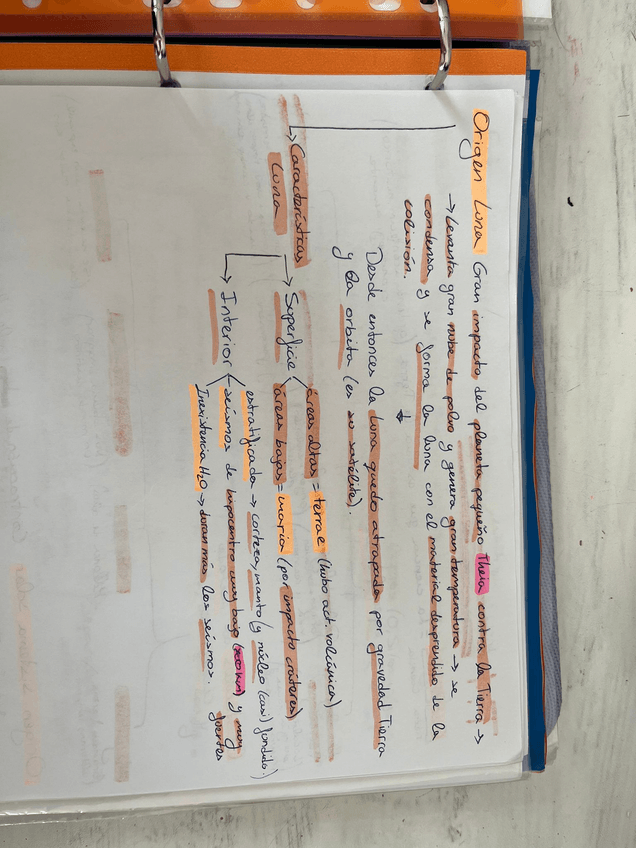 Origen Luna: Gran impacto del planeta pequeño Theia contra la Tierra →
→ Levanta gran nube de polvo y genera gran temperatura → se
condensa y se forma la luna con el material desprendido de la
colisión.
Desde entonces la Luna quedo atrapada por gravedad Tierra
y la orbita (es su satélite).
→ Características
Luna
→ Superficie
áreas altas = terrae (hubo act. volcánica)
áreas bajas = maria (por impacto cráteres)
→ Interior
estratificada → corteza, manto (y núcleo (casi) fundido.)
seismos de hipocentro muy bajo (km) y muy
fuertes
Inexistencia H₂O → duran más los seismos.